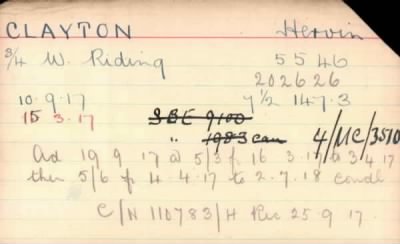 CLAYTON Hervin
3/4 W. Riding 5546
202626
10.9.17 Y 1/2 147.3
15 3.17 SBE 9100
" 1983 can 4/MC/3510
Ad 19 9 17 @ 5/3 f 16 3.17 3 4 17
then 5/6 f 4.4.17 to 2.7.18 condl
C/N 110783/H Rec 25.9.17.